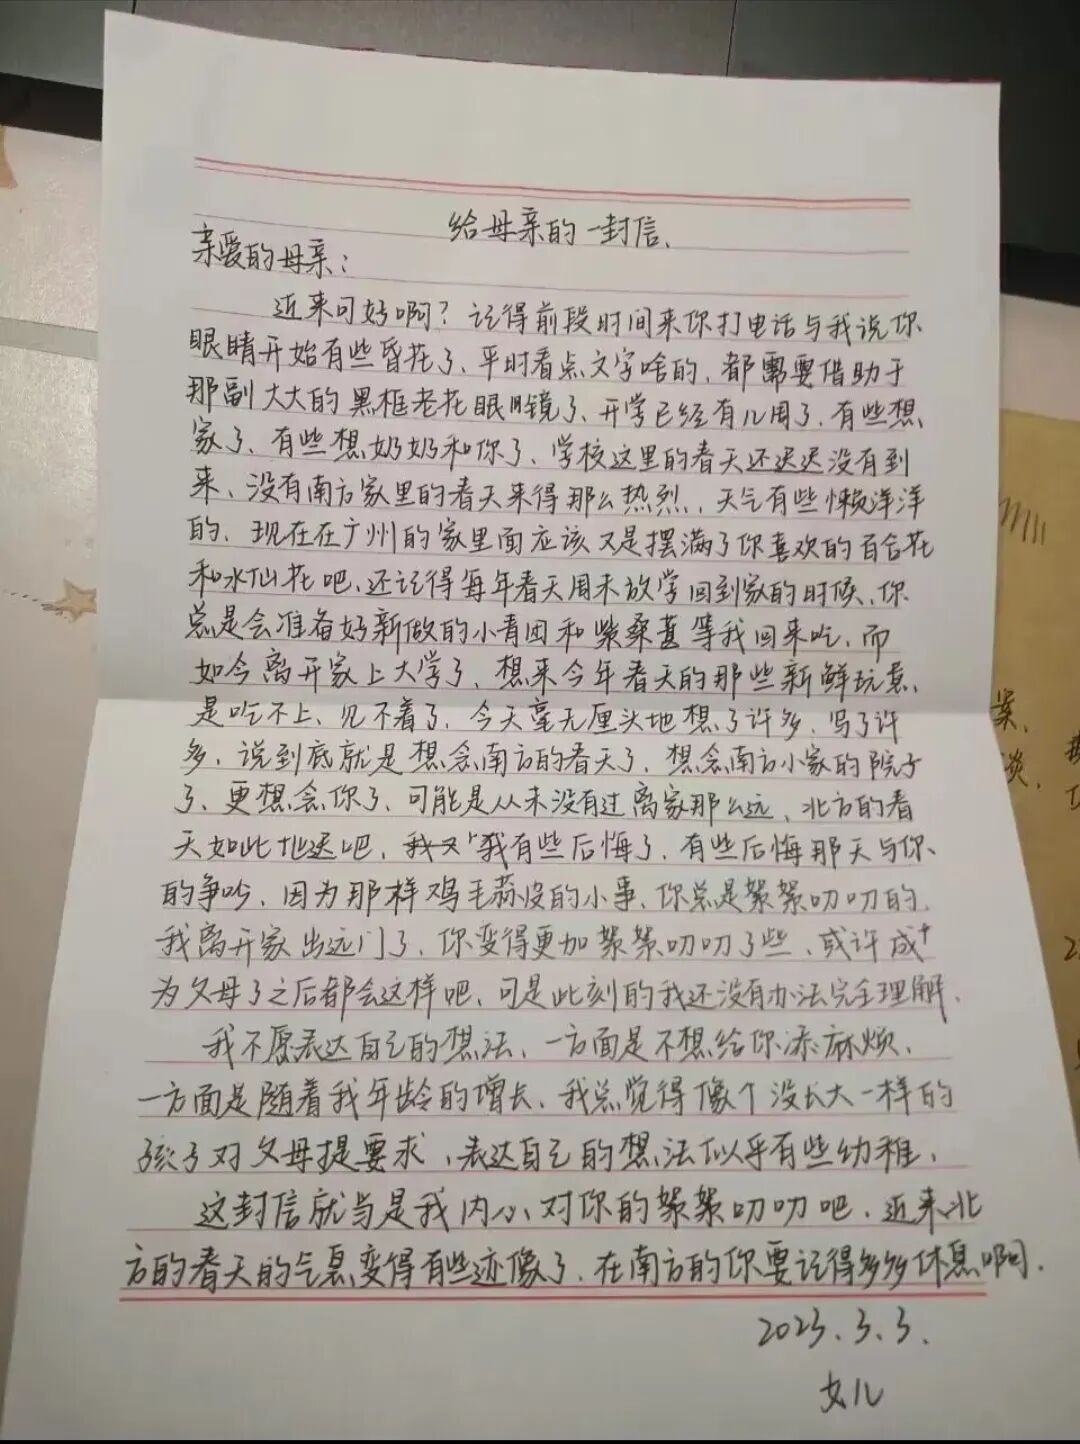 给母亲的一封信、
亲爱的母亲：
近来可好啊？记得前段时间来你打电话与我说你
眼睛开始有些昏花了、平时看点文字啥的、都需要借助于
那副大大的黑框老花眼镜了、开学已经有几周了、有些想
家了、有些想奶奶和你了、学校这里的春天还迟迟没有到
来、没有南方家里的春天来得那么热烈、天气有些懒洋洋
的、现在在广州的家里面应该又是摆满了你喜欢的百合花
和水仙花吧、还记得每年春天周末放学回到家的时候、你
总是会准备好新做的小青团和紫桑葚等我回来吃、而
如今离开家上大学了、想来今年春天的那些新鲜玩意、
是吃不上、见不着了、今天毫无厘头地想了许多、写了许
多、说到底就是想念南方的春天了、想念南方小家的院子
了、更想念你了、可能是从未没有过离家那么远、北方的春
天如此地迟吧、我又我有些后悔了、有些后悔那天与你
的争吵、因为那样鸡毛蒜皮的小事、你总是絮絮叨叨的、
我离开家出远门了、你变得更加絮絮叨叨了些、或许成
为父母了之后都会这样吧、可是此刻的我还没有办法完全理解、
我不愿表达自己的想法、一方面是不想给你添麻烦、
一方面是随着我年龄的增长、我总觉得像个没长大一样的
孩子对父母提要求、表达自己的想法似乎有些幼稚、
这封信就当是我内心对你的絮絮叨叨吧、近来北
方的春天的气息变得有些迹像了、在南方的你要记得多多休息啊、
2023.3.3.
女儿
案、
谈、